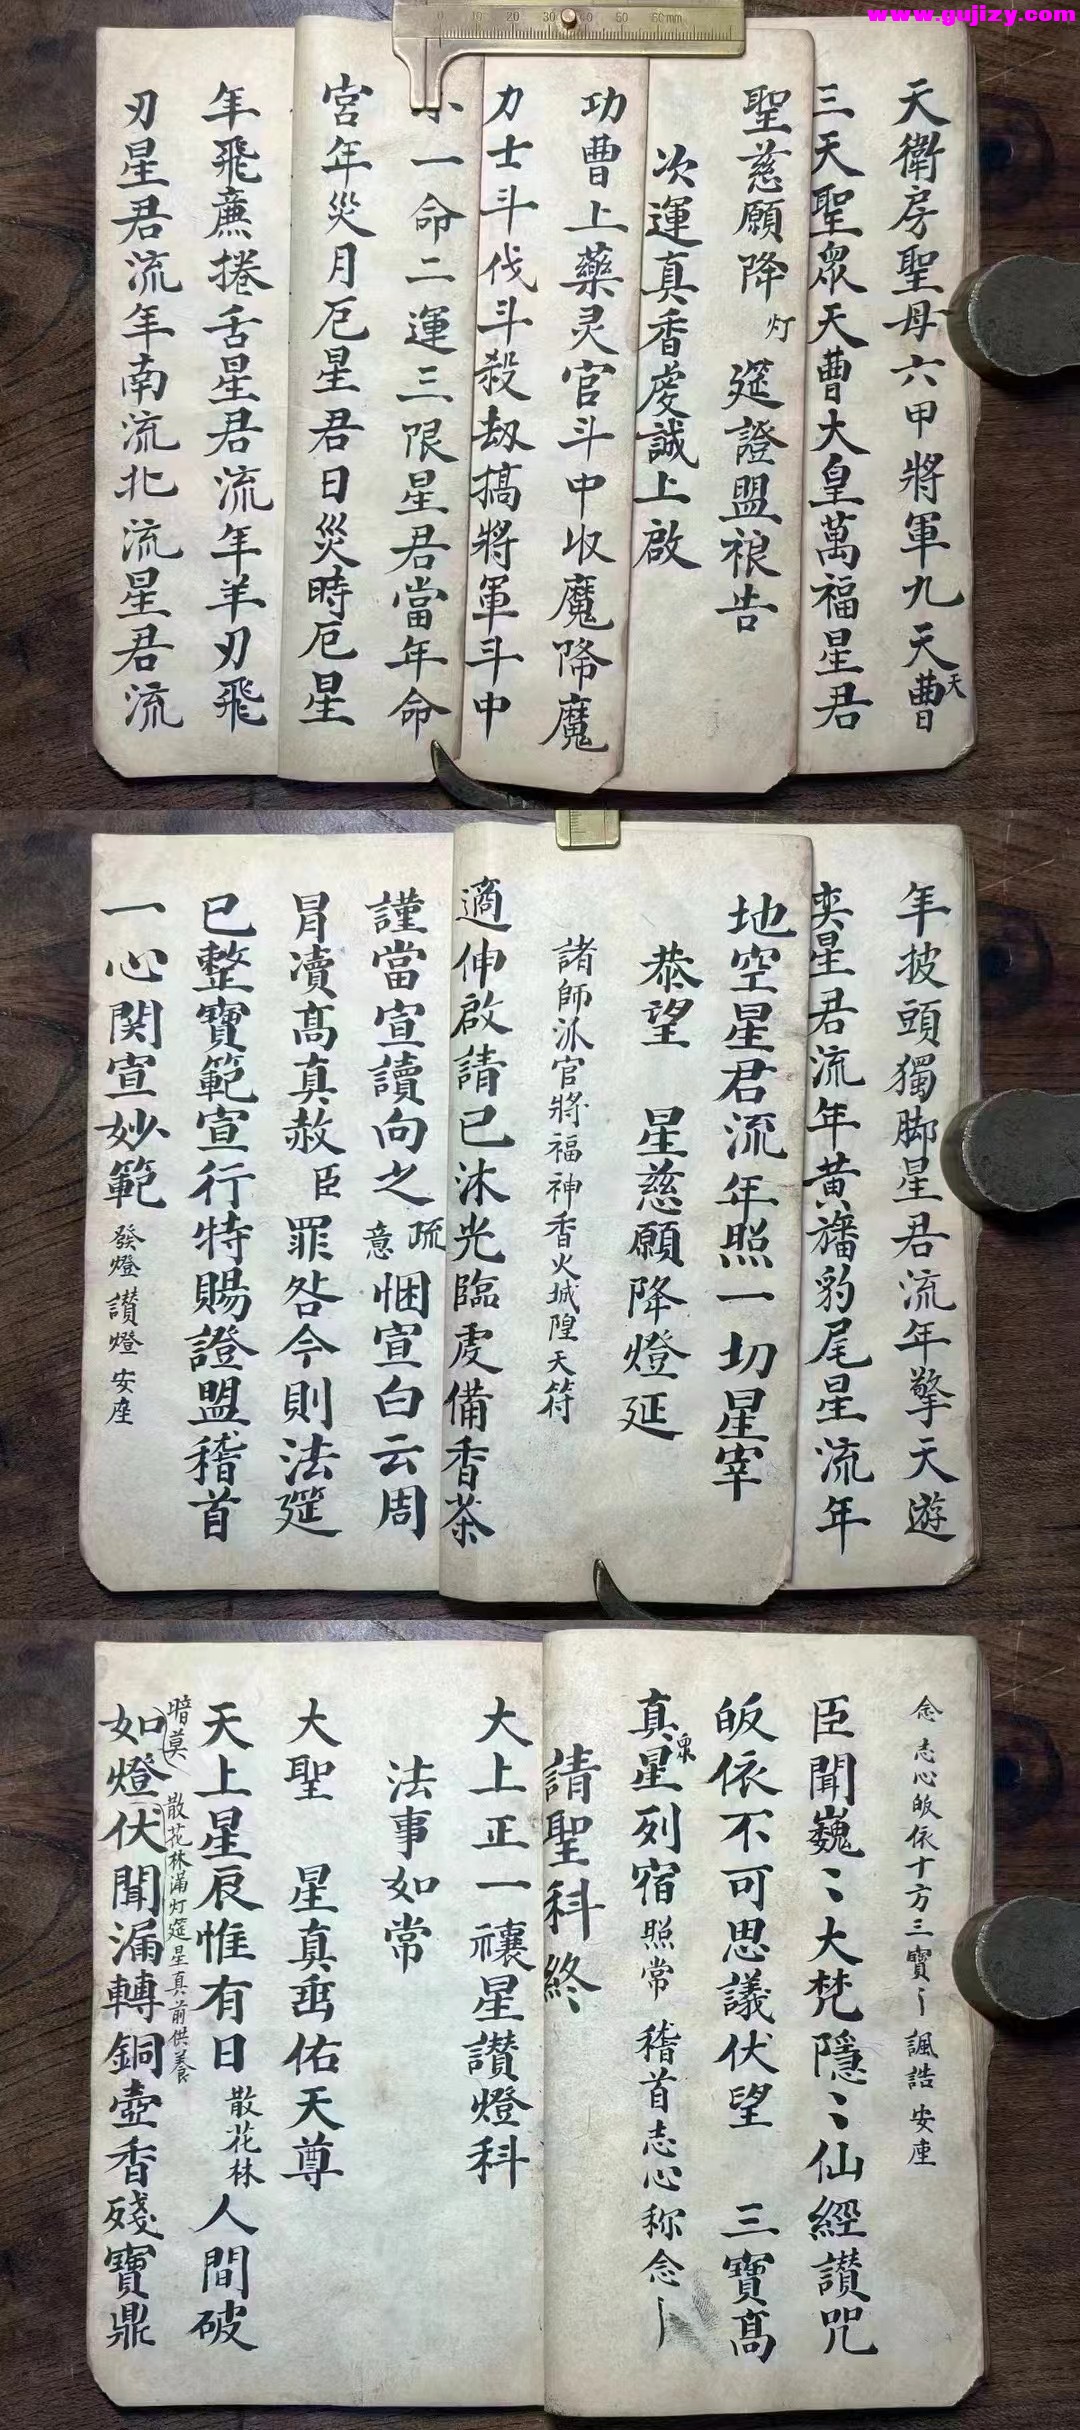 www.gujizy.com
0 10 20 30 40 50 60mm
天衛房聖母六甲將軍九天曹
天
三天聖眾天曹大皇萬福星君
聖慈願降灯筵證盟祿告
次運真香虔誠上啟
功曹上藥灵官斗中収魔降魔
力士斗伐斗殺劫搞將軍斗中
一命二運三限星君當年命
宮年災月厄星君日災時厄星
年飛亷捲舌星君流年羊刃飛
刃星君流年南流北流星君流
年披頭獨脚星君流年擎天遊
奕星君流年黃旛豹尾星流年
地空星君流年照一切星宰
恭望 星慈願降燈延
諸師派官將福神香火城隍天符
適伸啟請已沐光臨虔備香茶
謹當宣讀向之疏意悃宣白云周
冐瀆髙真赦臣罪咎今則法筵
已整寶範宣行特賜證盟稽首
一心関宣妙範發燈讃燈安座
念志心皈依十方三寶 諷誥安座
臣聞巍〻大梵隱〻仙經讃咒
皈依不可思議伏望 三寶髙
真眾星列宿照常 稽首志心称念
請聖科終
大上正一禳星讃燈科
法事如常
大聖 星真垂佑天尊
天上星辰惟有日散花林人間破
暗莫 散花林滿灯筵星真前供养
如燈伏聞漏轉銅壺香殘寶鼎